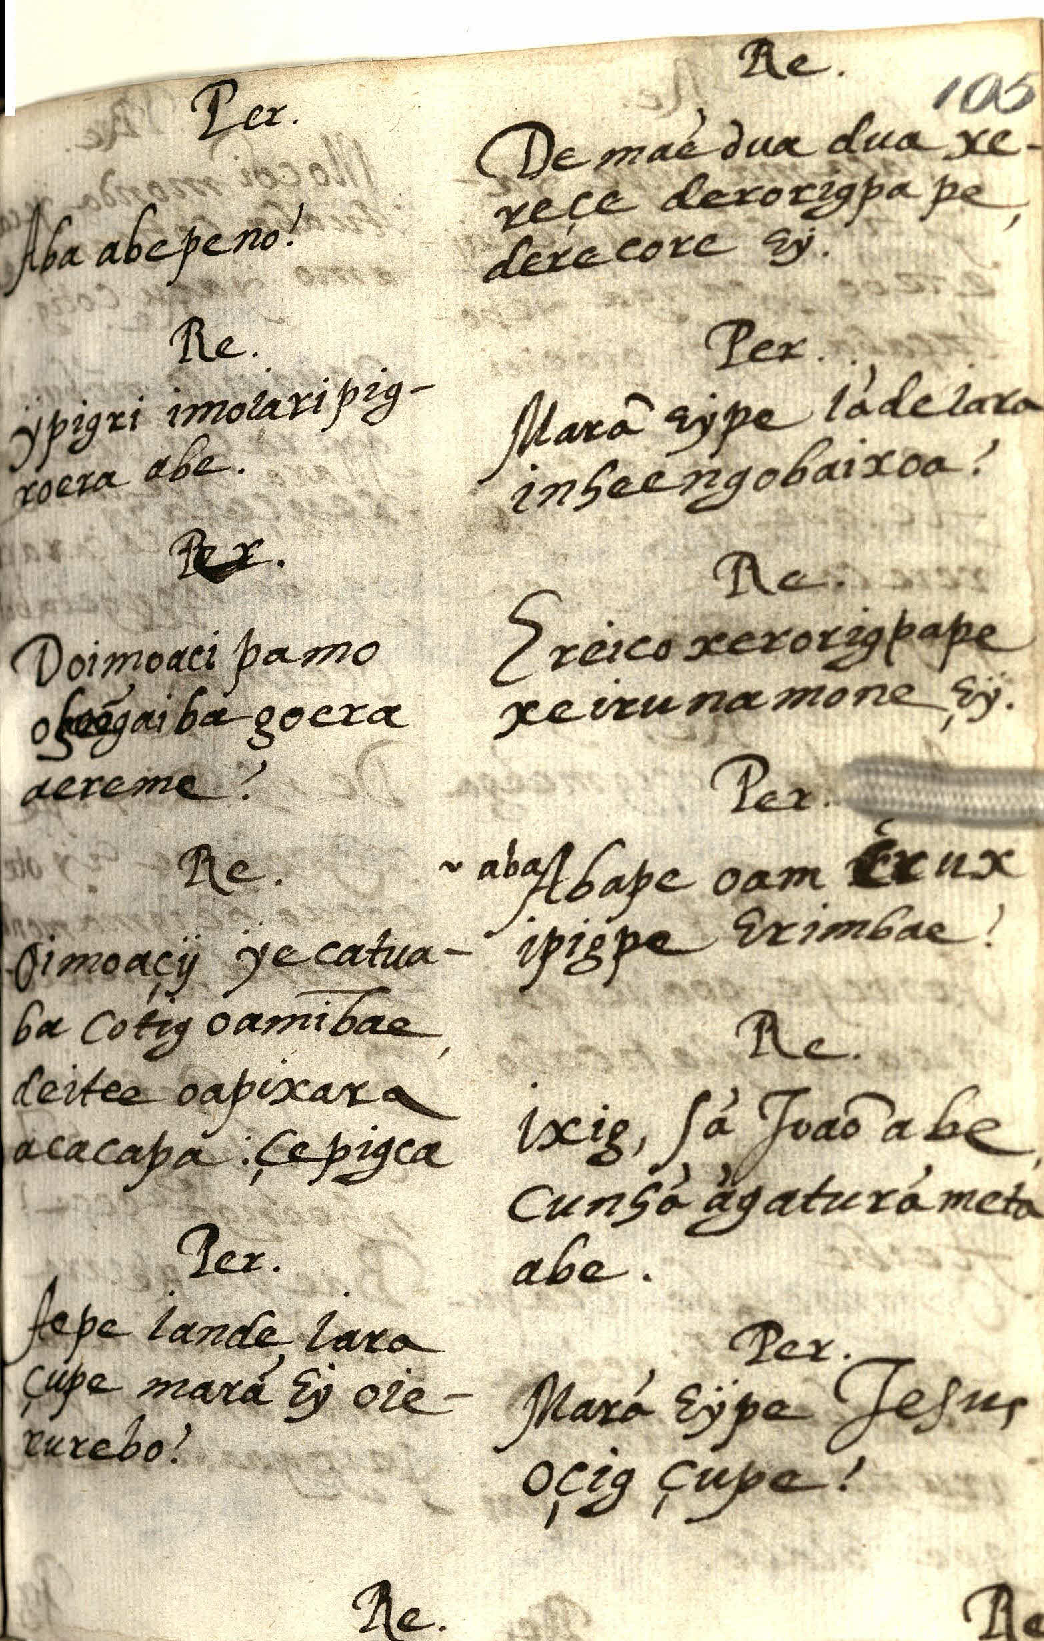 Per.
Aba abepeno?
Re.
ÿpigri imoiaripig-
roera abe.
Per.
Doimoaci pamo
gaiba goera
aereme?
Re.
Oimoaçÿ ÿecatua-
ba cotig oamĩbae,
deitee oapixara
acacapa: çepigca
Per.
Aepe iande iara
çupe marã Eÿ oie-
rurebo?
Re.
105
Re.
De maẽdua dua xe-
reçe derorigpa pe,
derecore Eÿ.
Per.
Marã Eÿpe iãdeiara
inheengobaixoa?
Re.
Ereico xerorigpape
xeirunamone, Eÿ.
Per.
~ aba
Abape oam Erux
ipigpe Erimbae?
Re.
ixig, sã Joaõ abe,
cunhã ãgaturãmeta
abe.
Per.
Marã Eÿpe Jesus
oçig çupe?
Re